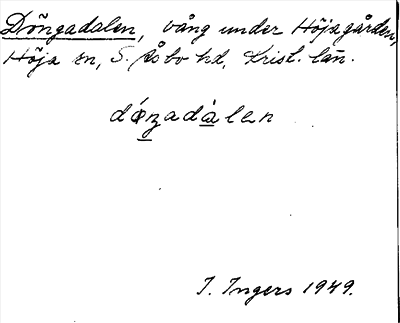 Döngadalen, vång under Höjagården,
Höja sn, S. Åsbo hd, Krist. län.
dȯ́n̲adȧ̲len
I. Ingers 1949.